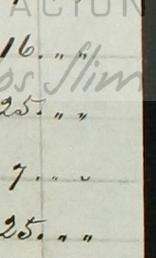 ACION
16. " "
os Slim
25. " "
7. " "
25. " "